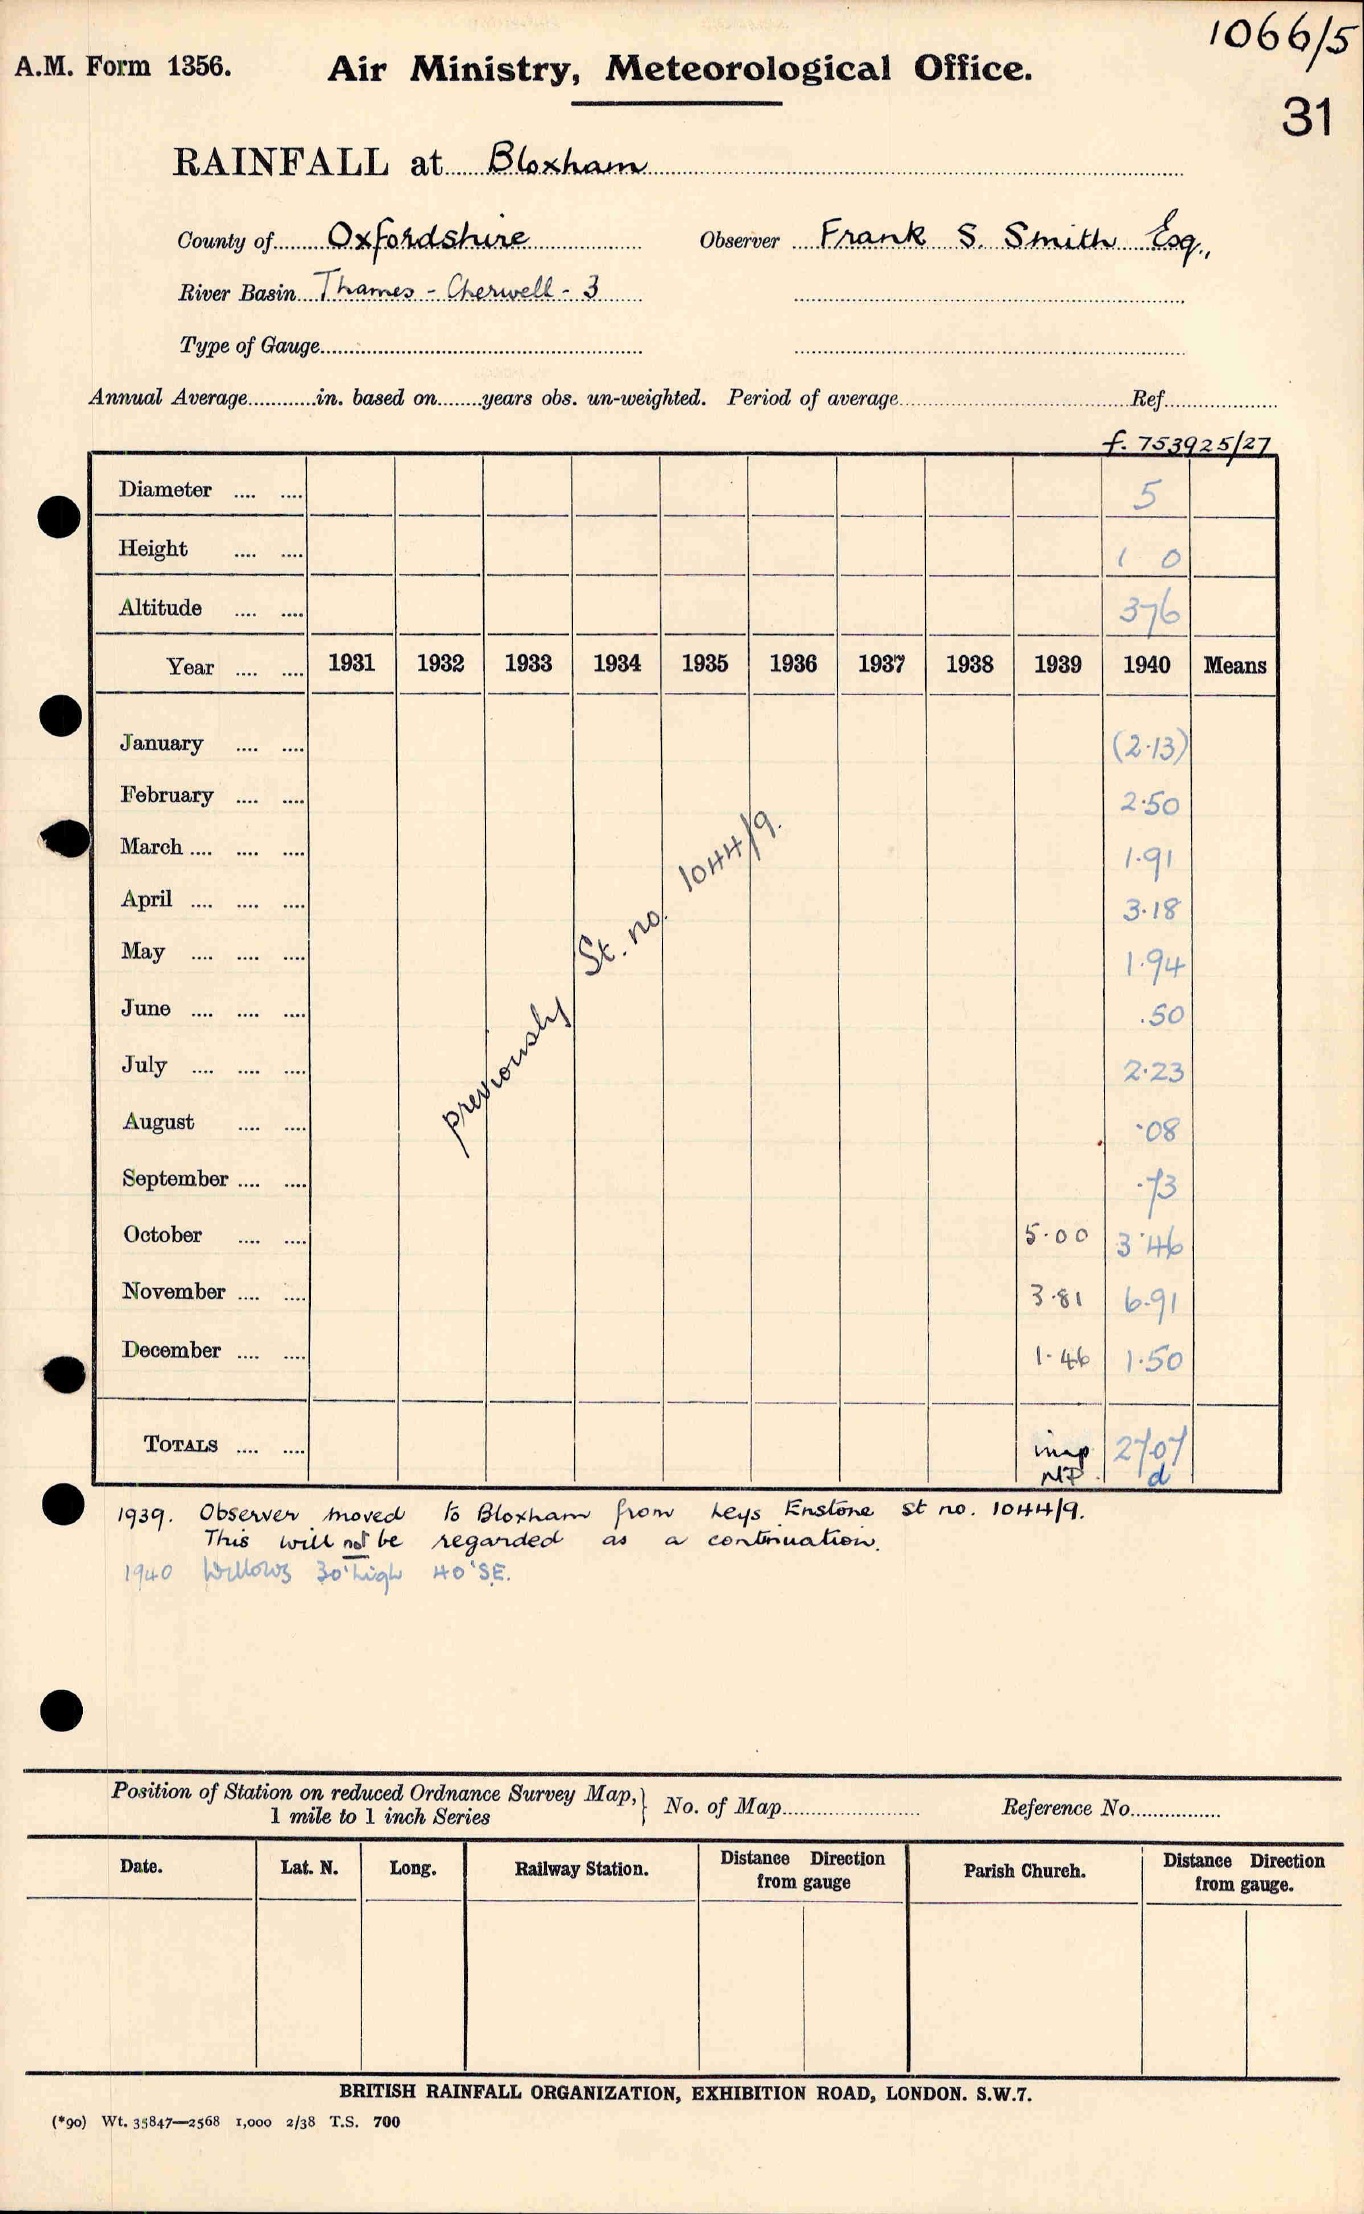 1066/5
A.M. Form 1356. Air Ministry, Meteorological Office.
31
RAINFALL at Bloxham
County of Oxfordshire Observer Frank S. Smith Esq.,
River Basin Thames - Cherwell - 3
Type of Gauge
Annual Average in. based on years obs. un-weighted. Period of average Ref
f. 753925/27
Diameter .... .... 5
Height .... .... 1 0
Altitude .... .... 376
Year .... .... 1931 1932 1933 1934 1935 1936 1937 1938 1939 1940 Means
January .... .... (2.13)
February .... .... 2.50
March .... .... .... 1.91
April .... .... .... 3.18
May .... .... .... 1.94
June .... .... .... .50
July .... .... .... 2.23
August .... .... .08
September .... .... .73
October .... .... 5.00 3.46
November .... .... 3.81 6.91
December .... .... 1.46 1.50
previously St. no. 1044/9.
TOTALS .... .... imp 27.07
NP. d
1939. Observer moved to Bloxham from Leys Enstone st no. 1044/9.
This will not be regarded as a continuation.
1940 Willows 30' high 40' SE.
Position of Station on reduced Ordnance Survey Map, 1 mile to 1 inch Series } No. of Map Reference No.
Date. Lat. N. Long. Railway Station. Distance Direction from gauge Parish Church. Distance Direction from gauge.
BRITISH RAINFALL ORGANIZATION, EXHIBITION ROAD, LONDON. S.W.7.
(*90) Wt. 35847—2568 1,000 2/38 T.S. 700